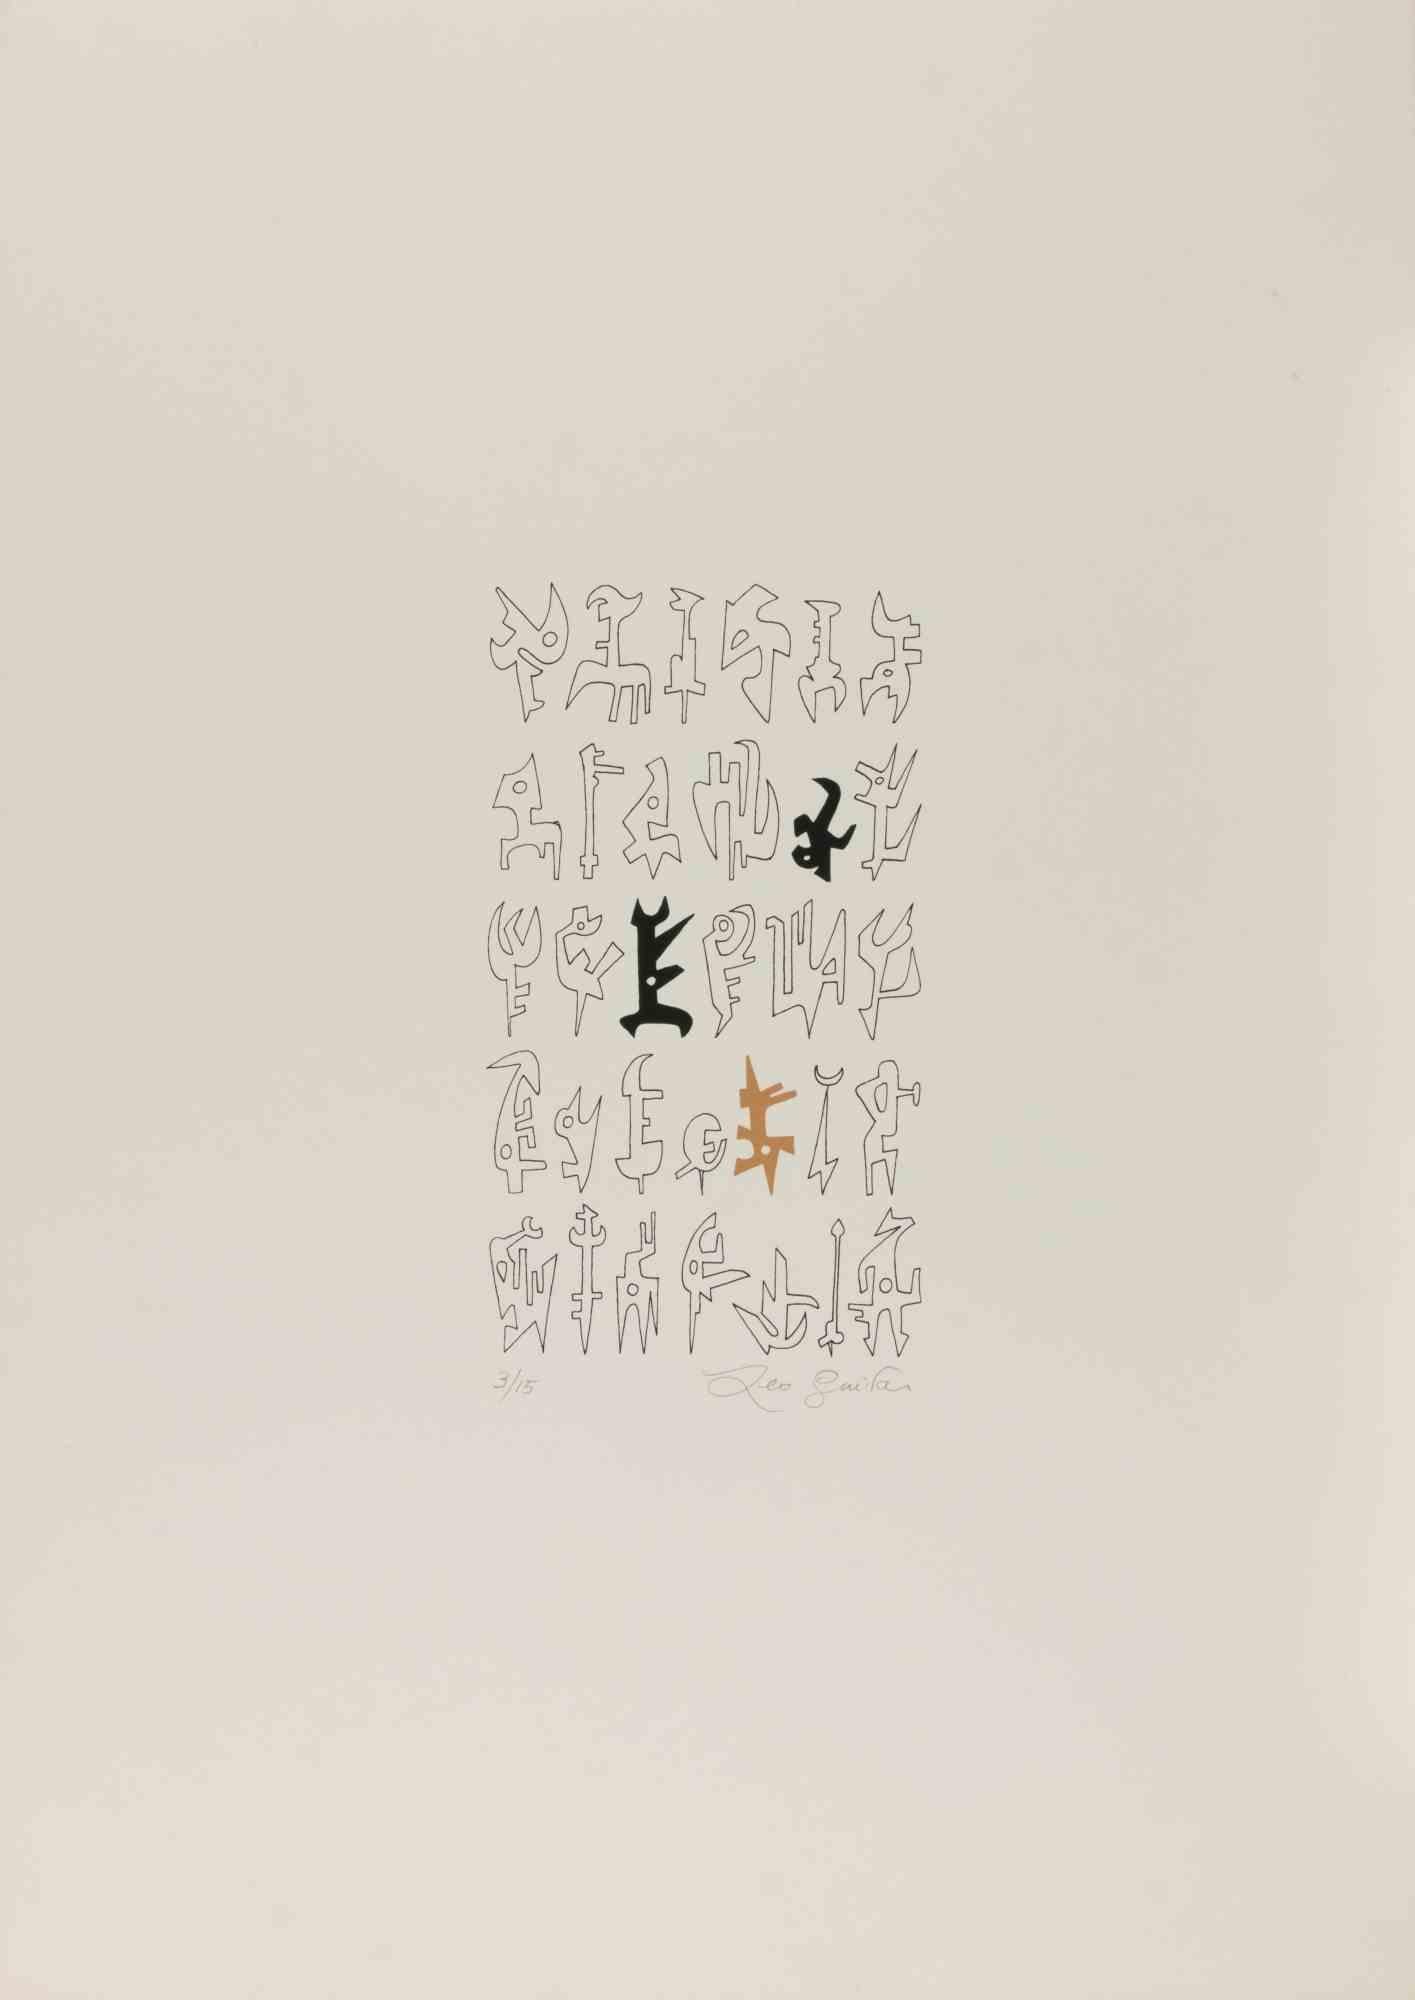 3/15 Leo Guida